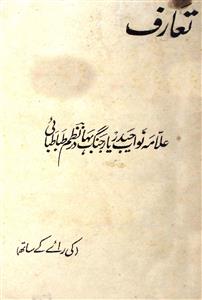 تعارف
علامہ نواب حیدر یار جنگ بہادر نظم طباطبائی
(کی رائے کے ساتھ)